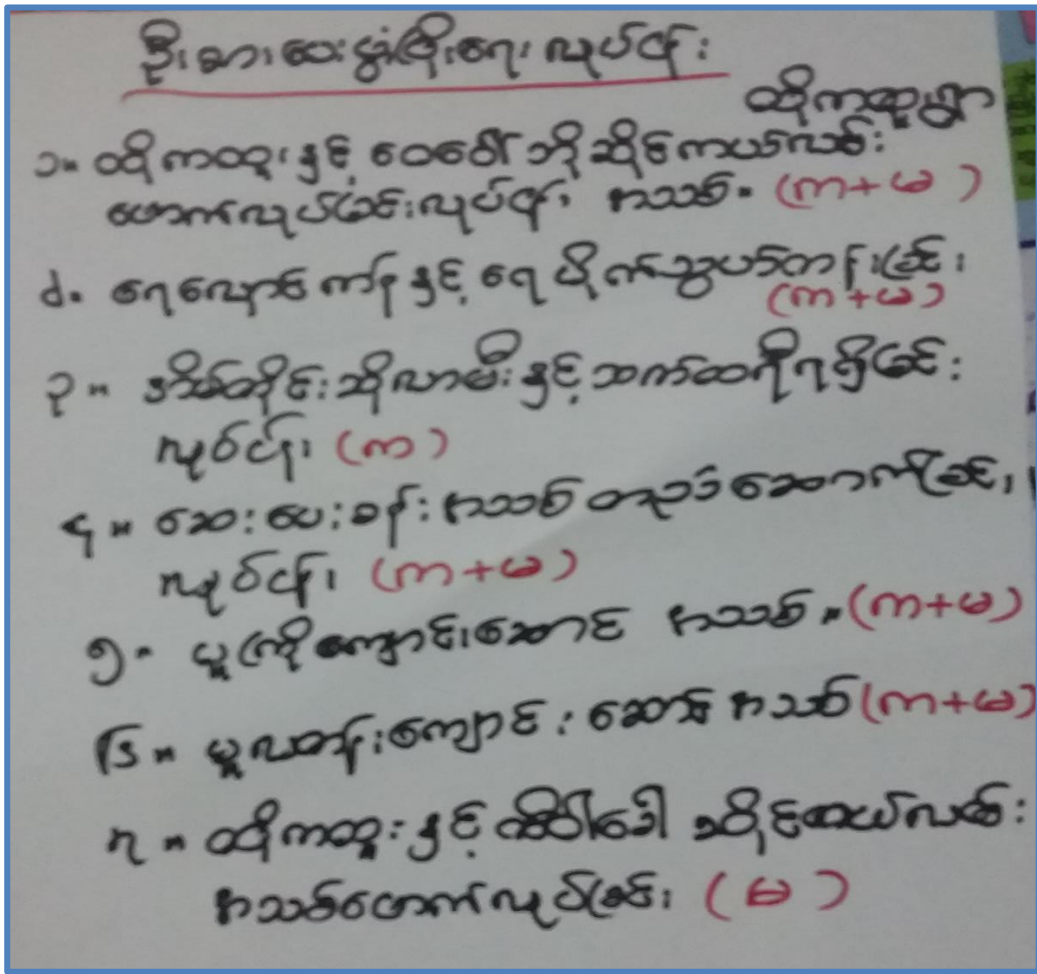 ဦးစားပေးဖွံ့ဖြိုးရေး လုပ်ငန်း
ထိုကထူးရွာ
၁။ ထိုကထူးနှင့် ဝေဒေါ်ဘို ဆိုင်ကယ်လမ်း
ဖောက်လုပ်ခြင်းလုပ်ငန်း အသစ်။ (က+မ)
၂။ ရေလှောင်ကန်နှင့် ရေပိုက်သွယ်တန်းခြင်း
(က+မ)
၃။ အိမ်တိုင်းဆိုလာမီးနှင့် ဘက်ထရီရရှိခြင်း
လုပ်ငန်း (က)
၄။ ဆေးပေးခန်းအသစ် တည်ဆောက်ခြင်း
လုပ်ငန်း (က+မ)
၅။ မူကြိုကျောင်းဆောင် အသစ်။ (က+မ)
၆။ မူလတန်းကျောင်းဆောင် အသစ် (က+မ)
၇။ ထိုကထူးနှင့် ဆိုင်ကယ်လမ်း
အသစ်ဖောက်လုပ်ခြင်း (မ)